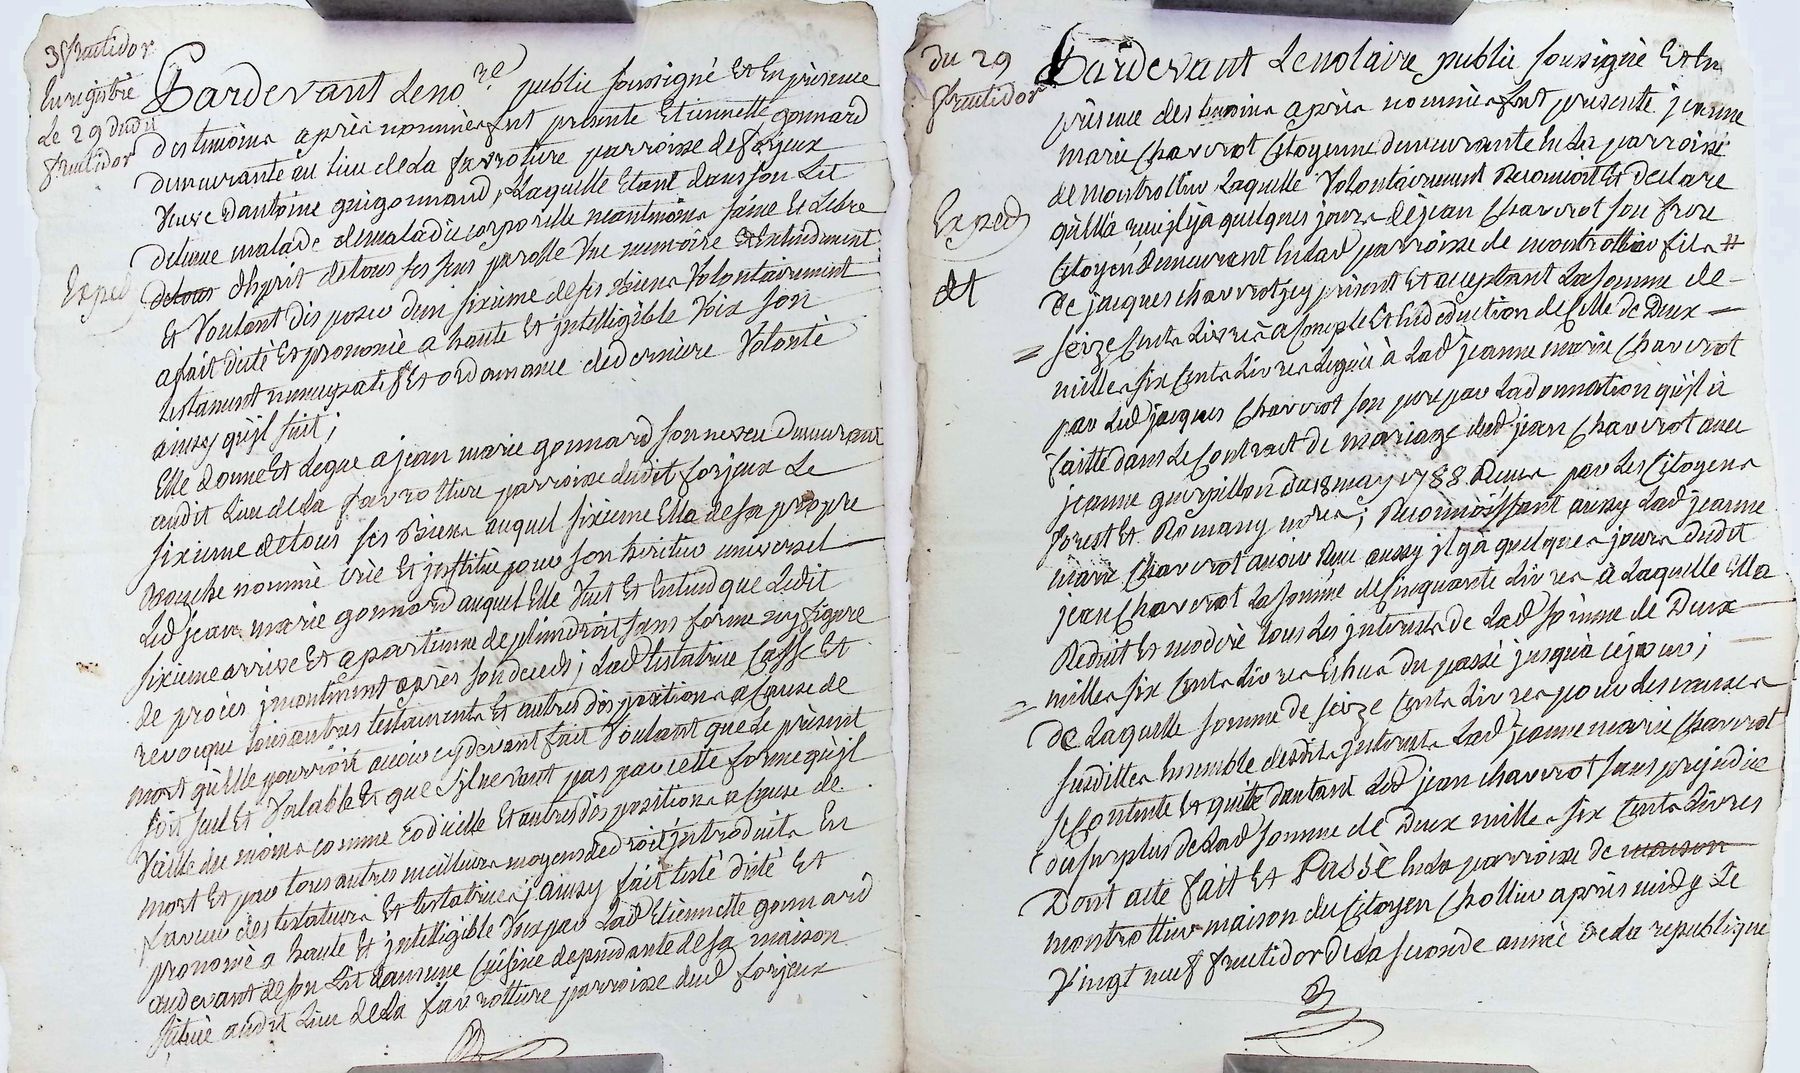 3 fructidor
Enregistré
Le 29 dudit
fructidor
Exped
Pardevant Leno.re public soussigné Et En présence
des temoins après nommés fut presente Etiennette gonnard
demeurante au lieu de La favrotiere parroisse de forjeux
veuve dantoine guigonnand, Laquelle Etant dans son Lit
detenue malade de maladie corporelle neantmoins saine Et Libre
detous d'hsprit detous ses sens parolle vue memoire Et Entendement
Et voulant disposer d'un sixieme de ses Biens volontairement
a fait dicté Et prononcé a haute Et jntelligible voix son
testament nuncupatif Et ordonnance de derniere volonté
ainsy qu'jl suit;
Elle donne Et Legue a jean marie gonnard son neveu demeurant
audit Lieu de La favrottiere parroisse dudit forjeux Le
sixieme de tous ses Biens auquel sixieme Elle de sa propre
Bouche nommé crée Et jnstitué pour son heritier universel
Led jean marie gonnard auquel Elle veut Et Entend que Ledit
sixieme arrive Et apartienne de plein droit sans forme ny figure
de procès jncontinent après son decedz; Lad testatrice Casse Et
revocque tous autres testaments Et autres dispositions a Cause de
mort qu'elle pourroit avoir cy devant fait voulant que Le présent
soit seul Et valable Et que s'jl ne vaut pas par cette forme qu'jl
vaille du moins comme codicille Et autres dispositions a Cause de
mort Et par tous autres meilleurs moyens de droit jntroduits En
faveur des testateurs Et testatrices; ainsy fait testé dicté Et
prononcé a haute Et jntelligible voix par Lad Etiennette gonnard
au devant de son Lit dans une Cuisine dependante de sa maison
située audit Lieu de La favrottiere parroisse dud forjeux
Du 29
fructidor
Exped
dt
Pardevant Le notaire public soussigné Et En
présence des temoins après nommés fut presente jeanne
marie Chavrot Citoyenne demeurante En La parroisse
de montrottier Laquelle volontairement Reconnoit Et declare
qu'Ella reçu jl y a quelques jours de jean Chavrot son frere
Citoyen demeurant En Lad parroisse de montrottier fils #
de jacques chavrot jcy présent Et acceptant La somme de
= seize Cents Livres a Compte Et En deduction de Celle de Deux
milles six Cents Livres Leguée à Lad jeanne marie Chavrot
par Led jacques Chavrot son pere par La donnation qu'jl a
faitte dans Le Contract de mariage dud jean Chavrot avec
jeanne guerpillon du 18 may 1788 Reçus par Les Citoyens
forest Et Romany no.res; Reconnoissant aussy Lad jeanne
marie Chavrot avoir Reçu aussy jl y a quelques jours dudit
jean Chavrot La somme de Cinquante Livres à Laquelle Ella
Reduit Et modéré tous Les jnterests de Lad somme de Deux
milles six Cents Livres Echus du passé jusqu'à ce jour;
= de Laquelle somme de seize Cents Livres pour Les causes
susdittes Ensemble desdits jnterests Lad jeanne marie Chavrot
se Contente Et quitte dautant Led jean chavrot sans prejudice
du surplus de Lad somme de Deux milles six Cents Livres
Dont acte fait Et Passé En La parroisse de maison
montrottier maison du Citoyen Chollier après midy Le
vingt neuf fructidor de La seconde année de La republique